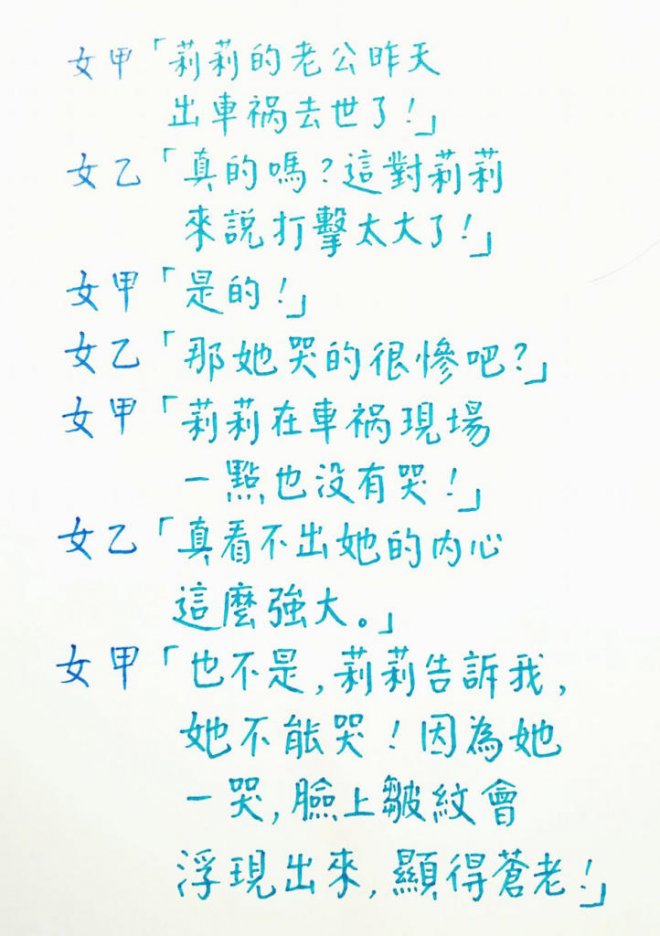 女甲「莉莉的老公昨天
出車禍去世了!」
女乙「真的嗎?這對莉莉
來說打擊太大了!」
女甲「是的!」
女乙「那她哭的很慘吧?」
女甲「莉莉在車禍現場
一點也沒有哭!」
女乙「真看不出她的内心
這麼強大。」
女甲「也不是,莉莉告訴我,
她不能哭!因為她
一哭,臉上皺紋會
浮現出來,顯得蒼老!」